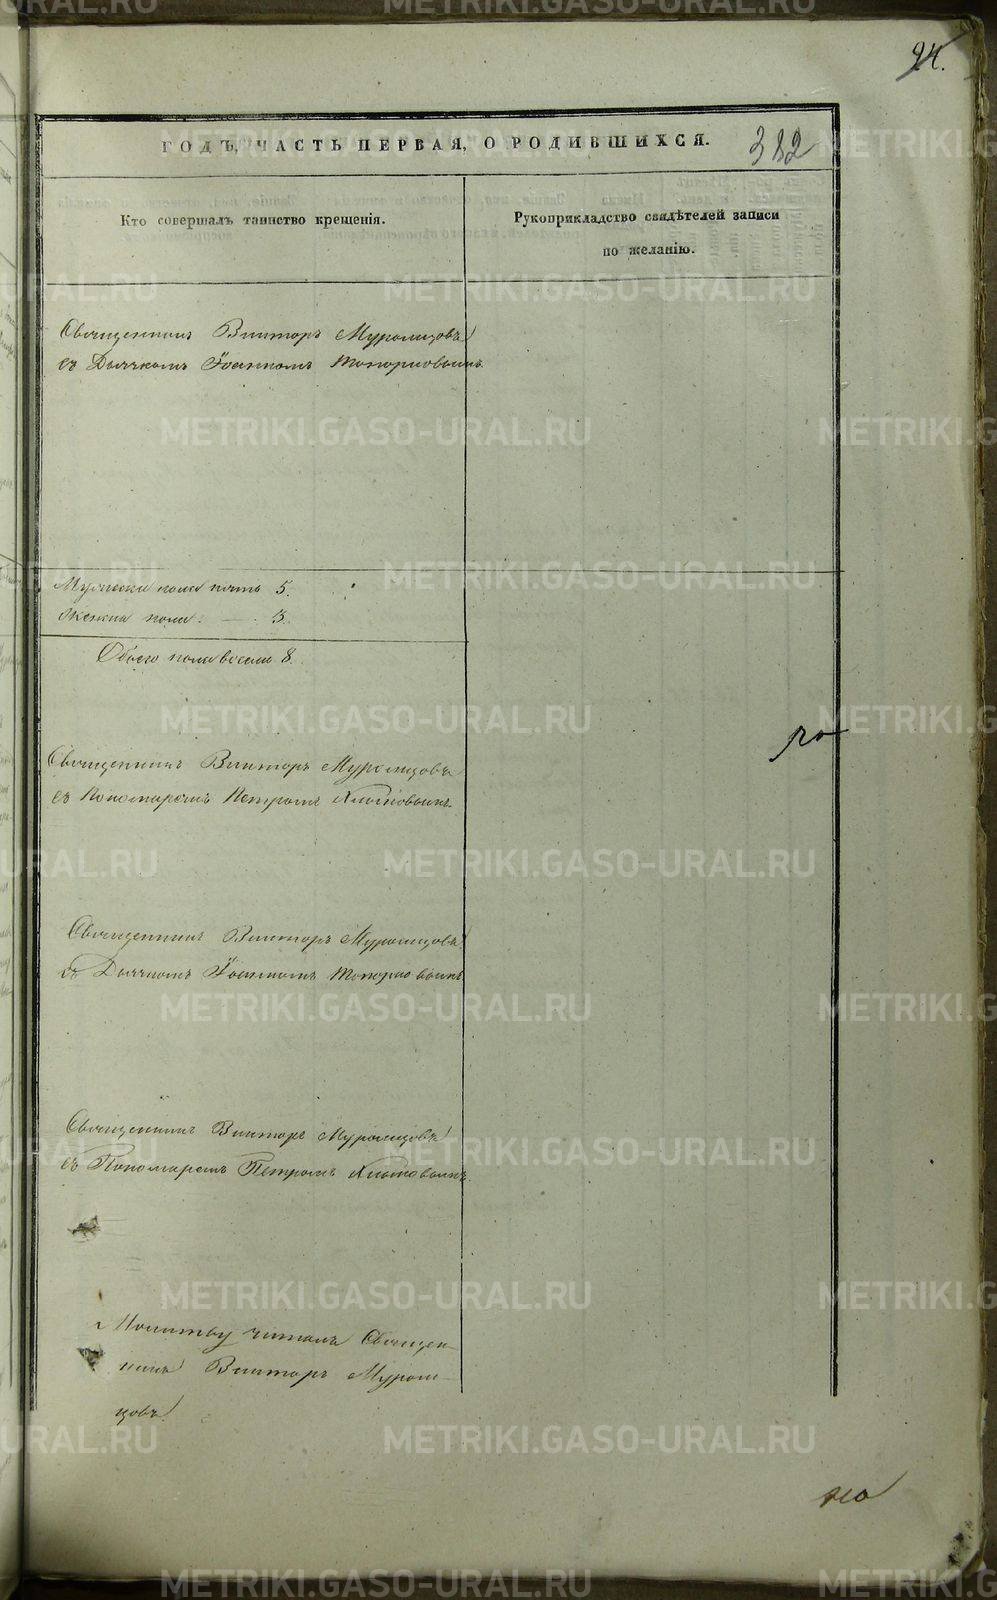 94.
ГОДЪ, ЧАСТЬ ПЕРВАЯ, О РОДИВШИХСЯ. 382
Кто совершалъ таинство крещенія.
Рукоприкладство свидѣтелей записи
по желанію.
Священникъ Викторъ Муромцовъ
съ Дьячкомъ Іоанномъ Топорковымъ
Мужеска пола пять 5.
Женска пола: — . 3.
Обоего пола восемь 8.
Священникъ Викторъ Муромцовъ
съ Пономаремъ Петромъ Хлыновымъ.
Священникъ Викторъ Муромцовъ
съ Дьячкомъ Іоанномъ Топорковымъ
Священникъ Викторъ Муромцовъ
съ Пономаремъ Петромъ Хлыновымъ.
Молитву читалъ Священ-
никъ Викторъ Муром-
цовъ
METRIKI.GASO-URAL.RU